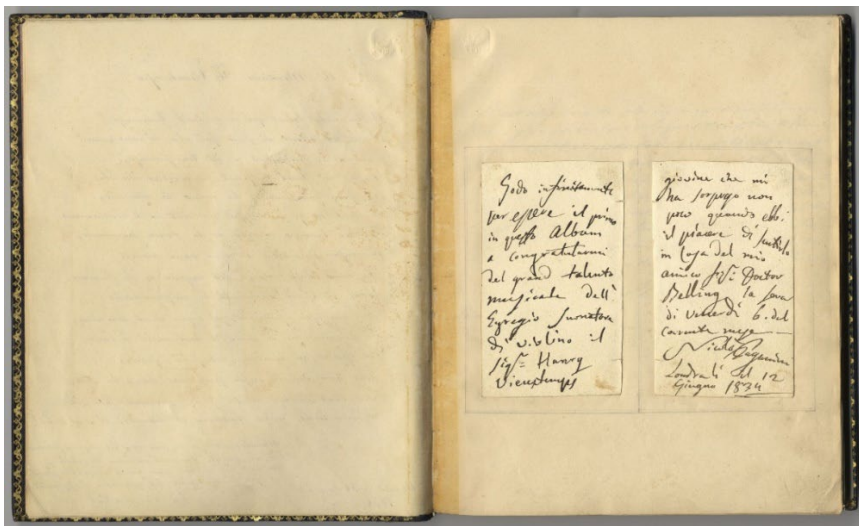 Godo infinitamente
per essere il primo
in questo Album
a congratularmi
del grand talento
musicale dell'
Egregio Suonatore
di violino il
Sigr. Henry
Vieuxtemps
giovine che mi
ha sorpreso non
poco quando ebbi
il piacere di sentirlo
in Casa del mio
amico Sigr. Dottor
Belling la sera
di Venerdì 6. del
corrente mese
Nicolò Paganini
Londra li del 12
Giugno 1834